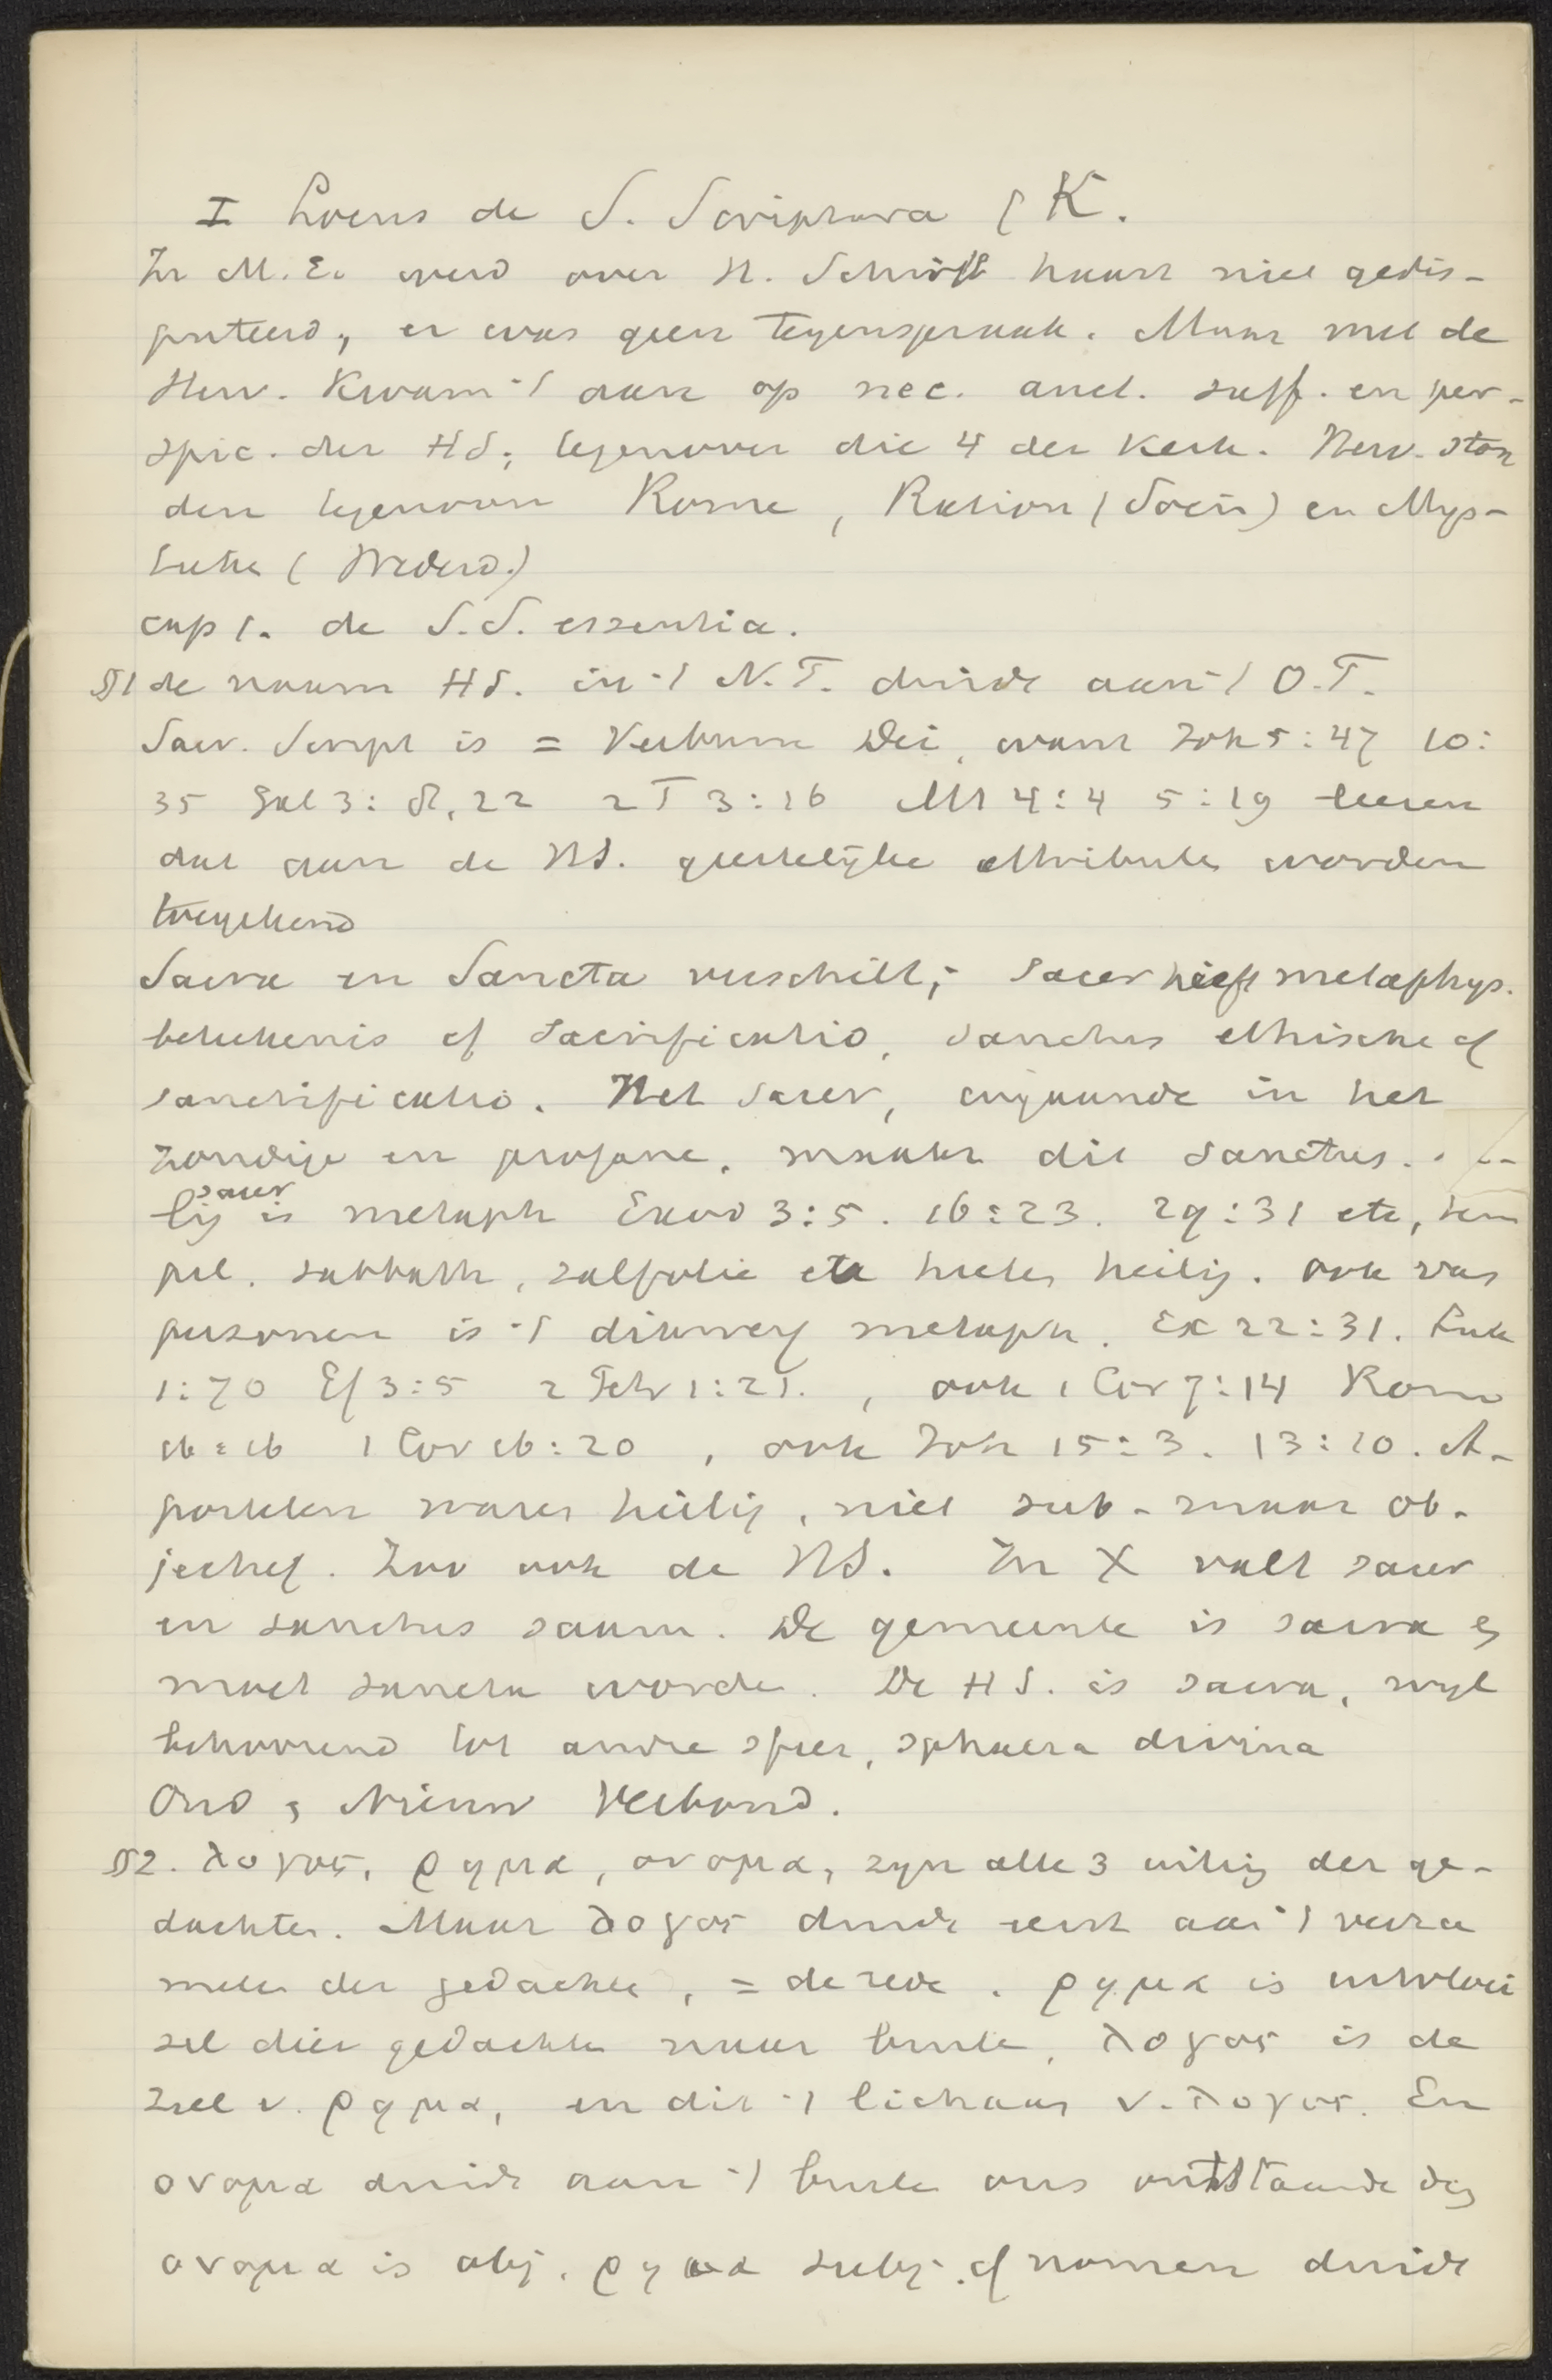 I Locus de S. Scriptura (K.
In M.E. werd over H. Schrift haast niet gedis-
puteerd, er was geen tegenspraak. Maar met de
Herv. kwam 't aan op nec. auct. suff. en per-
spic. der HS; tegenover die 4 der Kerk. Herv. ston
den tegenover Rome, Ration (Socin) en Mys-
tieke (Wederd.)
cap 1. de S.S. essentia.
§1 de naam HS. in 't N.T. duidt aan 't O.T.
Sacr. Script is = Verbum Dei, want Joh 5:47 10:
35 Gal 3:8,22 2T 3:16 Mt 4:4 5:19 leeren
dat aan de HS. goddelijke attributen worden
toegekend
Sacra en Sancta verschilt; sacer heeft metaphys.
beteekenis cf sacrificatio, sanctus ethische cf
sanctificatio. Het sacer, ingaande in het
zondige en profane, maakt dit sanctus.
sacer
is metaph Exod 3:5. 16:23. 29:31 etc, tem
pel, sabbath, zalfolie etc heeten heilig. ook van
personen is 't dikwerf metaph. Ex 22:31. Luk
1:70 Ef 3:5 2 Petr 1:21., ook 1 Cor 7:14 Rom
16:16 1 Cor 16:20, ook Joh 15:3. 13:10. A-
postelen waren heilig, niet sub- maar ob-
jectief. Zoo ook de HS. In X valt sacer
en sanctus saam. De gemeente is sacra en
moet sancta worden. De HS. is sacra, wijl
behoorend tot andre sfeer, sphaera divina
Oud en Nieuw Verbond.
§2. λογος, ρημα, ονομα, zyn alle 3 uiting der ge-
dachten. Maar λογος duidt eerst aan 't verza
melen der gedachte, = de rede. ρημα is uitvloei
sel dier gedachte naar buiten, λογος is de
ziel v. ρημα, en dit 't lichaam v. λογος. En
ονομα duidt aan 't buiten ons ontstaande
ονομα is obj. ρημα subj. cf nomen duidt